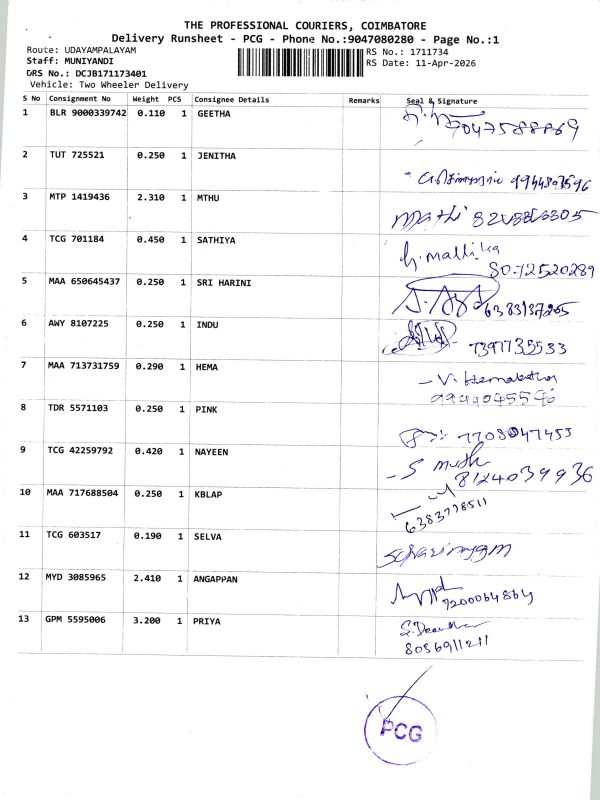 THE PROFESSIONAL COURIERS, COIMBATORE
Delivery Runsheet - PCG - Phone No.:9047080280 - Page No.:1
Route: UDAYAMPALAYAM
Staff: MUNIYANDI
DRS No.: DCJB171173401
Vehicle: Two Wheeler Delivery
RS No.: 1711734
RS Date: 11-Apr-2026
S No Consignment No Weight PCS Consignee Details Remarks Seal & Signature
1 BLR 9000339742 0.110 1 GEETHA 7047588869
2 TUT 725521 0.250 1 JENITHA 9944803596
3 MTP 1419436 2.310 1 MTHU Mathi
4 TCG 701184 0.450 1 SATHIYA G. mallika
8072520289
5 MAA 650645437 0.250 1 SRI HARINI 6383137265
6 AWY 8107225 0.250 1 INDU 7397735533
7 MAA 713731759 0.290 1 HEMA - V. Hemalatha
8 TDR 5571103 0.250 1 PINK 7708047455
9 TCG 42259792 0.420 1 NAYEEN - S
8124039936
10 MAA 717688504 0.250 1 KBLAP
6383778511
11 TCG 603517 0.190 1 SELVA
12 MYD 3085965 2.410 1 ANGAPPAN
7200064864
13 GPM 5595006 3.200 1 PRIYA
8056911211
PCG